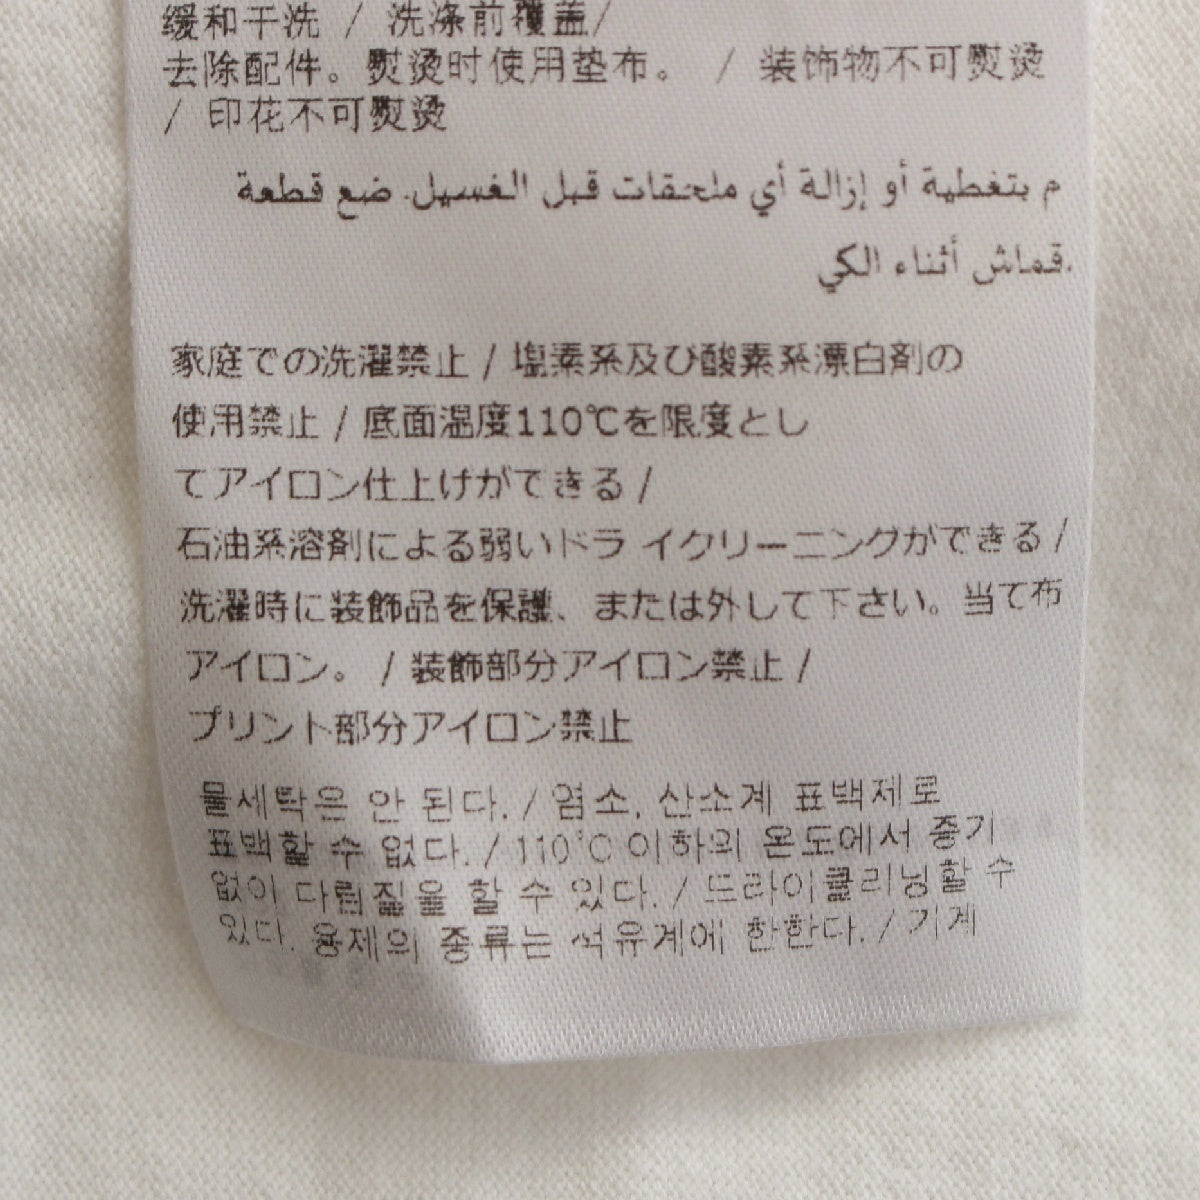 缓和干洗 / 洗涤前覆盖/
去除配件。熨烫时使用垫布。 / 装饰物不可熨烫
/ 印花不可熨烫
م بتغطية أو إزالة أي ملحقات قبل الغسيل. ضع قطعة
قماش أثناء الكي.
家庭での洗濯禁止 / 塩素系及び酸素系漂白剤の
使用禁止 / 底面温度110℃を限度とし
てアイロン仕上げができる /
石油系溶剤による弱いドラ イクリーニングができる /
洗濯時に装飾品を保護、または外して下さい。当て布
アイロン。 / 装飾部分アイロン禁止 /
プリント部分アイロン禁止
물세탁은 안 된다. / 염소, 산소계 표백제로
표백할 수 없다. / 110°C 이하의 온도에서 증기
없이 다림질을 할 수 있다. / 드라이클리닝할 수
있다. 용제의 종류는 석유계에 한한다. / 기계